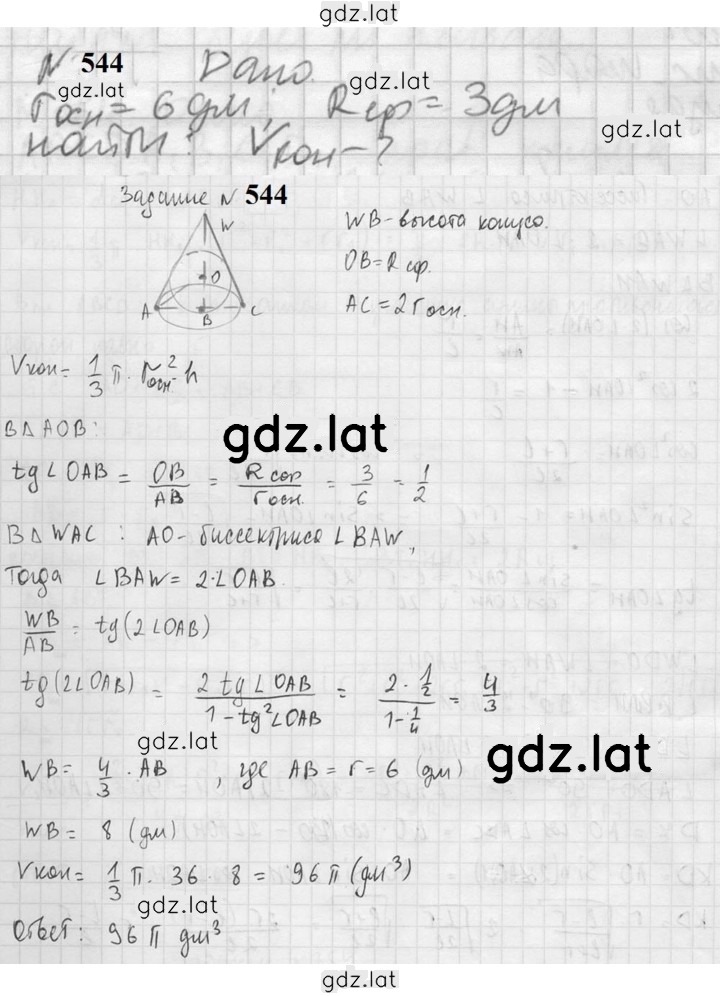 gdz.lat
N 544 Дано.
gdz.lat
gdz.lat
rосн = 6 дм, Rср = 3дм
gdz.lat
найти: Vкон - ?
Задание N 544
W
WB - высота конуса.
O
OB = R ср.
A B C
AC = 2 rосн.
Vкон = 1/3 π · rосн² h
В Δ AOB:
gdz.lat
tg ∠OAB = OB/AB = R сер/rосн. = 3/6 = 1/2
В Δ WAC : AO - биссектриса ∠BAW,
Тогда ∠BAW = 2·∠OAB.
WB/AB = tg(2∠OAB)
tg(2∠OAB) = 2 tg∠OAB/1-tg²∠OAB = 2·1/2/1-1/4 = 4/3
gdz.lat
gdz.lat
WB = 4/3 · AB , где AB = r = 6 (дм)
WB = 8 (дм)
Vкон = 1/3 π · 36 · 8 = 96 π (дм³)
gdz.lat
Ответ: 96 π дм³
gdz.lat